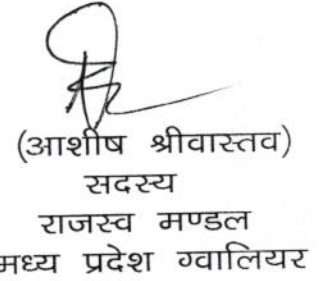 (आशीष श्रीवास्तव)
सदस्य
राजस्व मण्डल
मध्य प्रदेश ग्वालियर